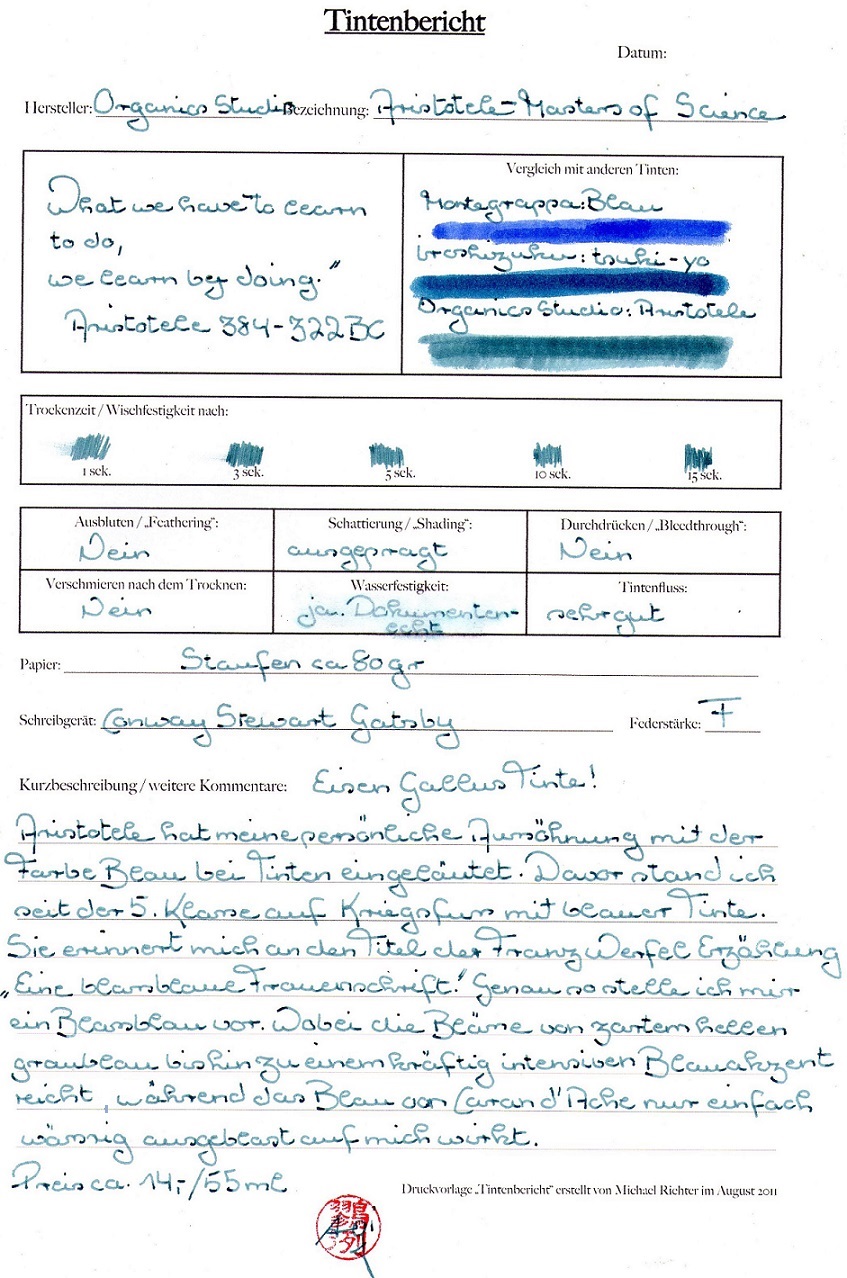 Tintenbericht
Datum:
Hersteller: Organics Studio Bezeichnung: Aristotele - Masters of Science
What we have to learn
to do,
we learn by doing."
Aristotele 384-322 BC
Vergleich mit anderen Tinten:
Montegrappa: Blau
iroshizuku: tsuki-yo
Organics Studio: Aristotele
Trockenzeit / Wischfestigkeit nach:
1 sek. 3 sek. 5 sek. 10 sek. 15 sek.
Ausbluten / „Feathering": Schattierung / „Shading": Durchdrücken / „Bleedthrough":
Nein ausgeprägt Nein
Verschmieren nach dem Trocknen: Wasserfestigkeit: Tintenfluss:
Nein ja. Dokumenten- sehr gut
echt
Papier: Staufen ca 80 gr
Schreibgerät: Conway Stewart Gatsby Federstärke: F
Kurzbeschreibung / weitere Kommentare: Eisen Gallus Tinte!
Aristotele hat meine persönliche Aussöhnung mit der
Farbe Blau bei Tinten eingeläutet. Davor stand ich
seit der 5. Klasse auf Kriegsfuss mit blauer Tinte.
Sie erinnert mich an den Titel der Franz Werfel Erzählung
„Eine blassblaue Frauenschrift." Genau so stelle ich mir
ein Blassblau vor. Wobei die Blässe von zartem hellen
graublau bis hin zu einem kräftig intensiven Blauakzent
reicht, während das Blau von Caran d'Ache nur einfach
wässrig ausgeblast auf mich wirkt.
Preis ca. 14,-/55 ml
Druckvorlage „Tintenbericht" erstellt von Michael Richter im August 2011